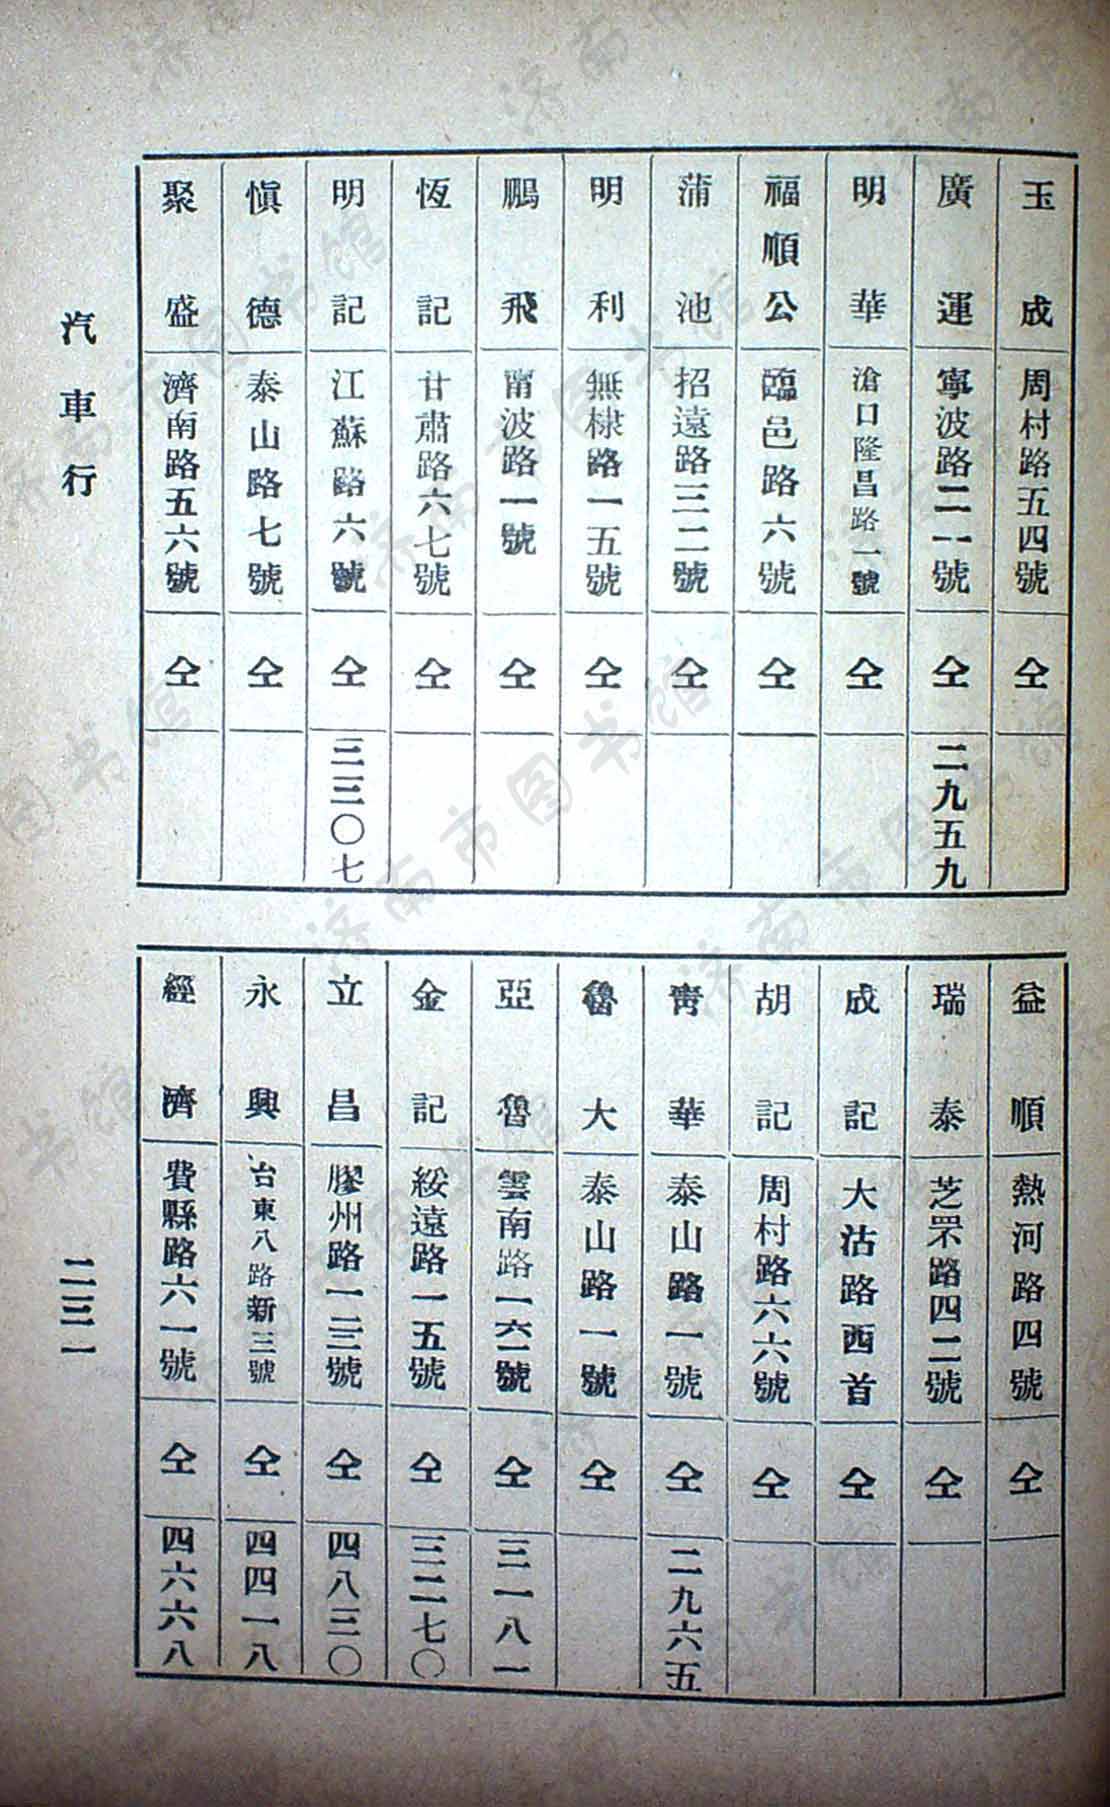 玉成 周村路五四號 仝
廣運 寧波路二一號 仝 二九五九
明華 滄口隆昌路一號 仝
福順公 臨邑路六號 仝
蒲池 招遠路三二號 仝
明利 無棣路一五號 仝
鵬飛 甯波路一號 仝
恆記 甘肅路六七號 仝
明記 江蘇路六號 仝 三三〇七
慎德 泰山路七號 仝
聚盛 濟南路五六號 仝
益順 熱河路四號 仝
瑞泰 芝罘路四二號 仝
成記 大沽路西首 仝
胡記 周村路六六號 仝
青華 泰山路一號 仝 二九六五
魯大 泰山路一號 仝
亞魯 雲南路一六二號 仝 三一八一
金記 綏遠路一五號 仝 三二七〇
立昌 膠州路一二三號 仝 四八三〇
永興 台東八路新三號 仝 四四一八
經濟 費縣路六一號 仝 四六六八
汽車行
二三一
济南市图书馆